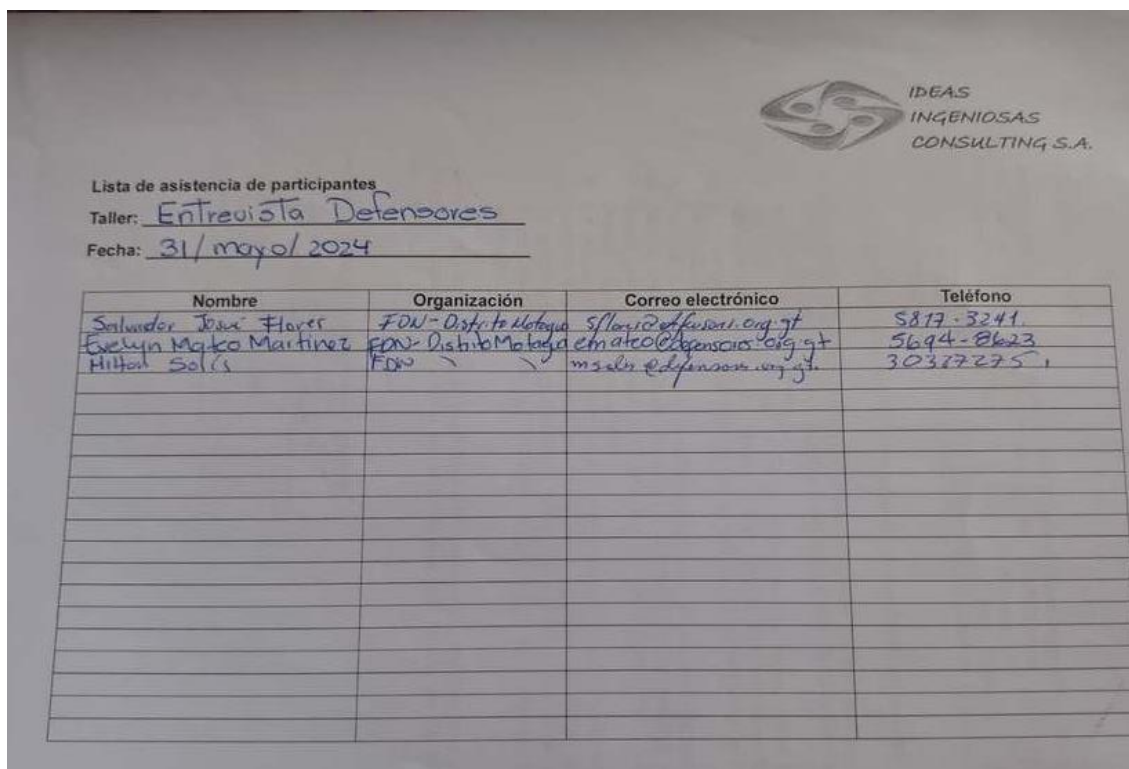 IDEAS
INGENIOSAS
CONSULTING S.A.
Lista de asistencia de participantes
Taller: Entrevista Defensores
Fecha: 31/mayo/2024
Nombre Organización Correo electrónico Teléfono
Salvador Josué Flores FDN-Distrito Motagua 5817-3241.
Evelyn Mateo Martinez FDN-Distrito Motagua emateo@defensores.org.gt 5694-8623
Solís FDN